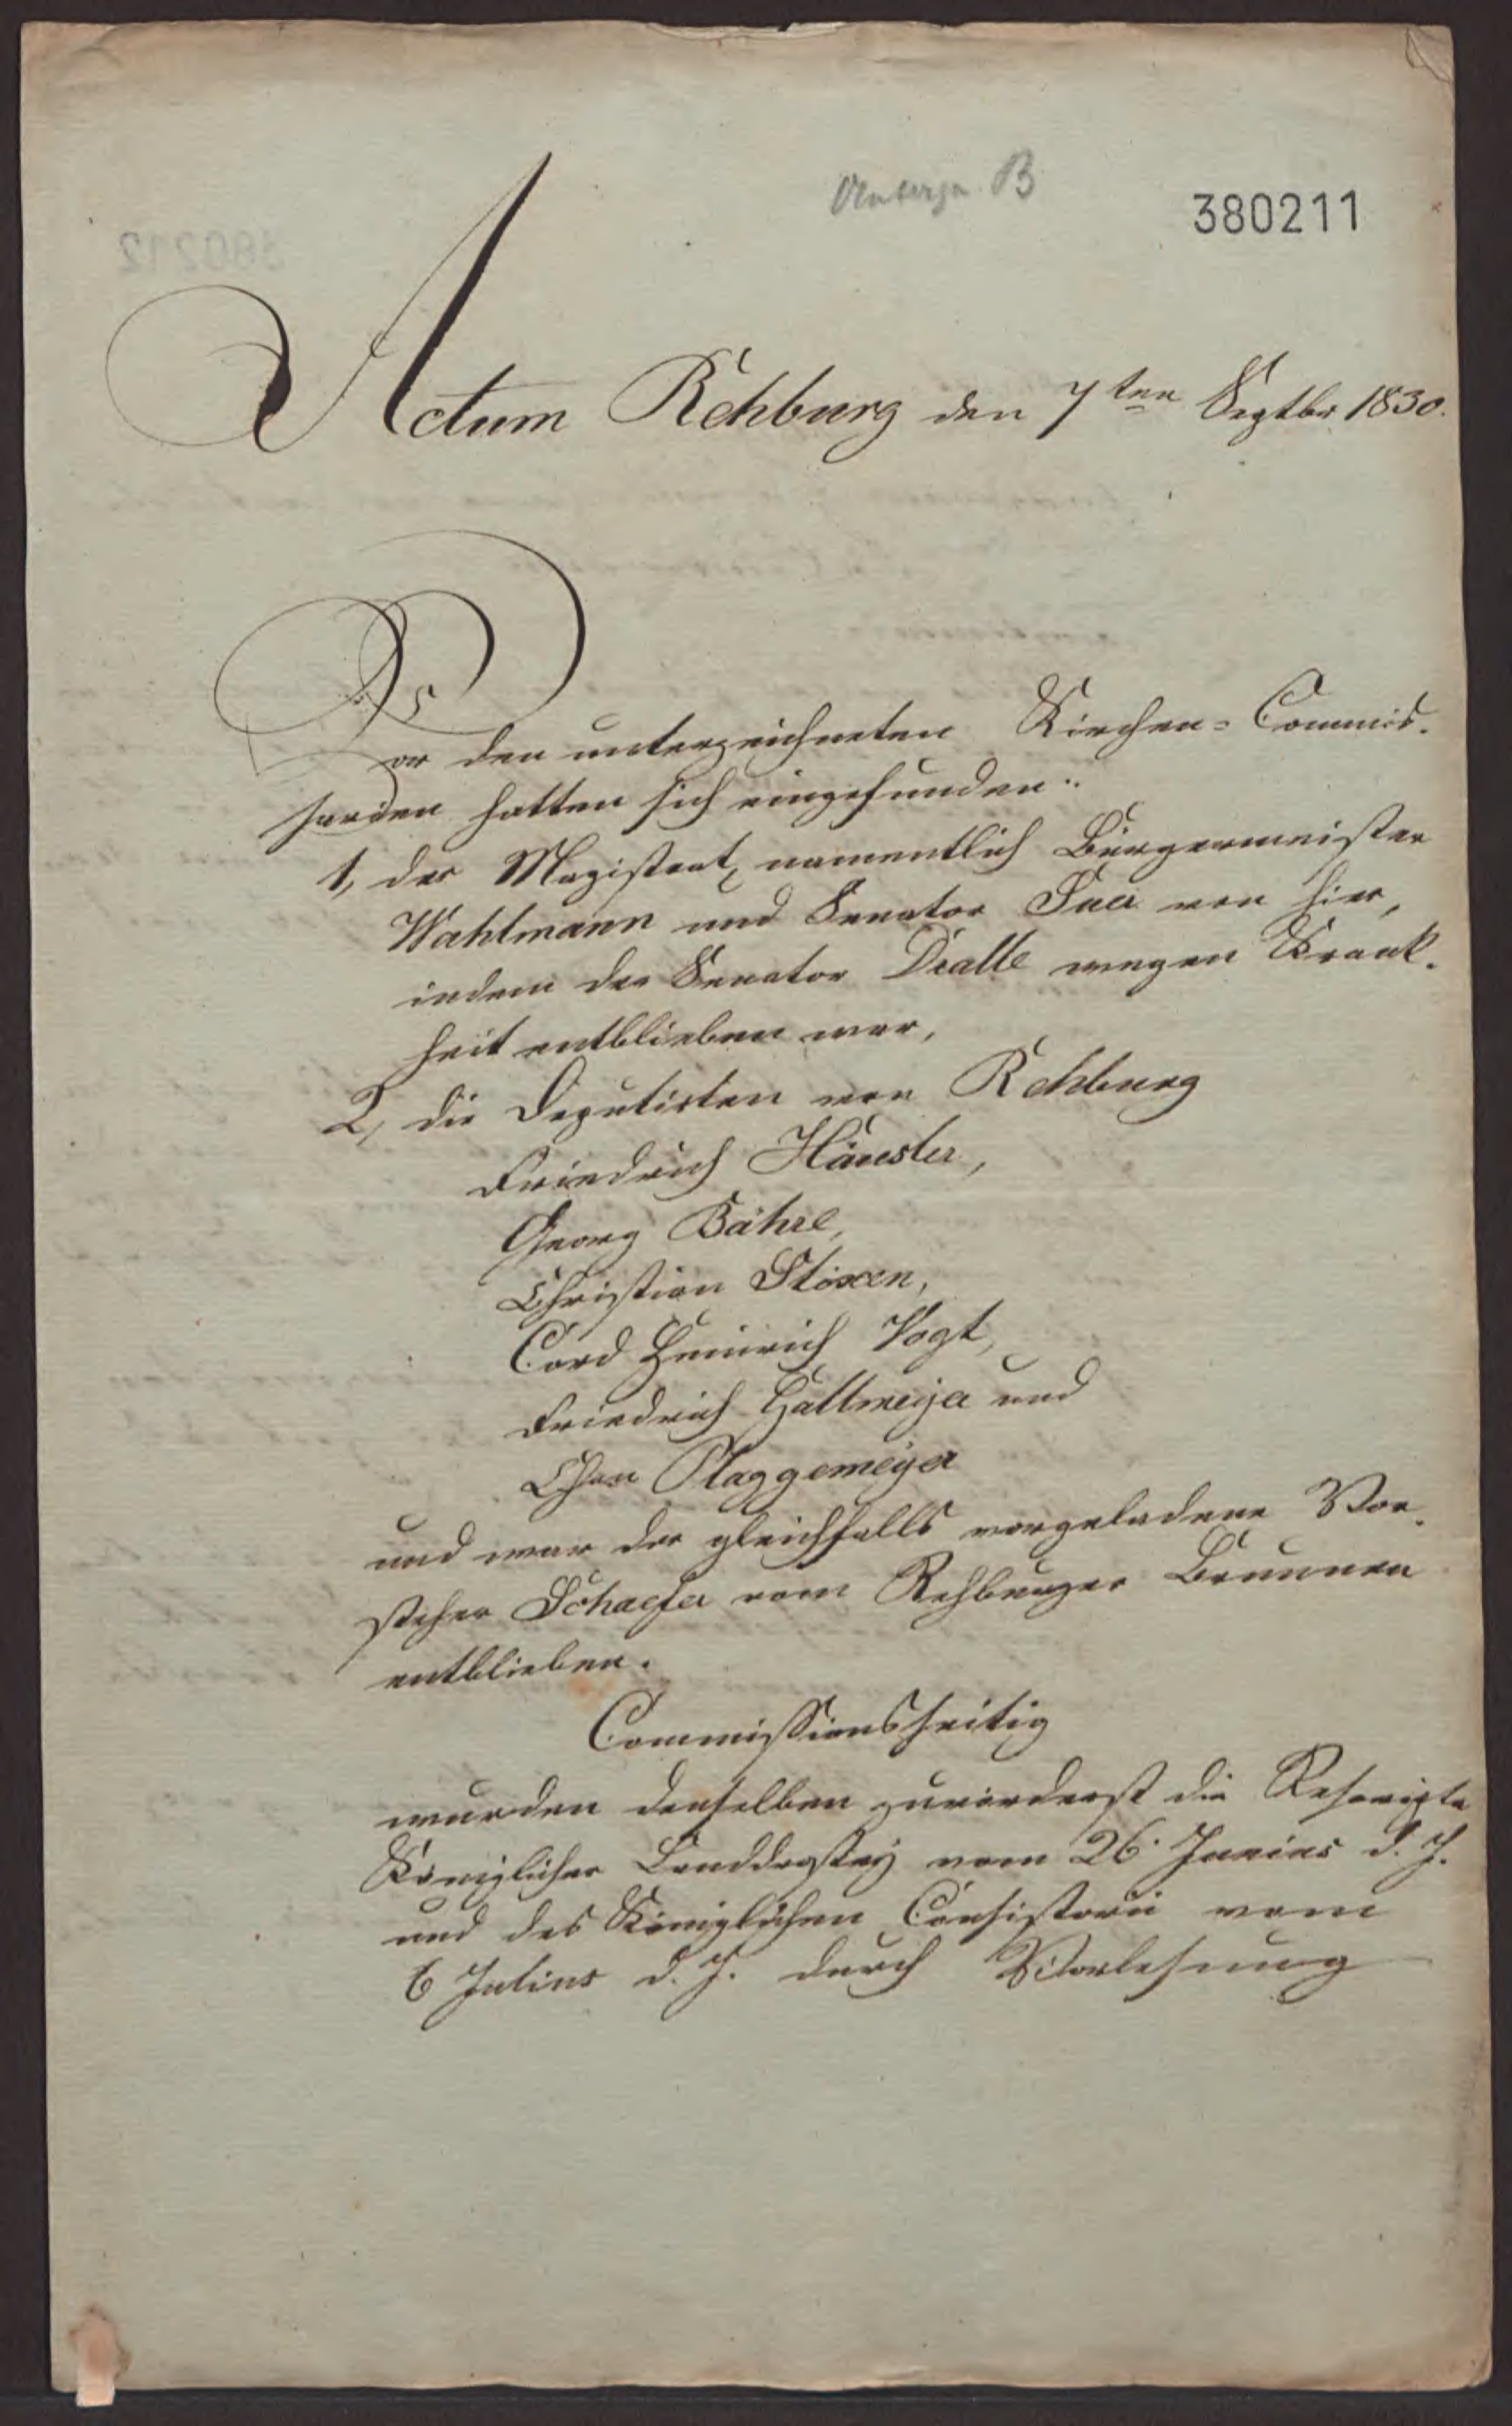 380211
Actum Rehburg den 7ten Septbr 1830.
Vor den unterzeichneten Kirchen-Commis-
sarien hatten sich eingefunden:
1, der Magistrat, namentlich Bürgermeister
Wahlmann und Senator Suer von hier,
indem der Senator Dralle wegen Krank-
heit entblieben war,
2, die Deputirten von Rehburg
Friedrich Häusler,
Georg Bähre,
Christian Stöxen,
Cord Heinrich Vogt,
Friedrich Hattmeyer und
Chrn Plaggemeyer
und war der gleichfalls vorgeladene Vor-
steher Schaefer vom Rehburger Brunnen
entblieben.
Commissionsseitig
wurden denselben zuvörderst die Rescripte
Königlicher Landdrostey vom 26. Junius d. J.
und des Königlichen Consistorii vom
6 Julius d. J. durch Vorlesung